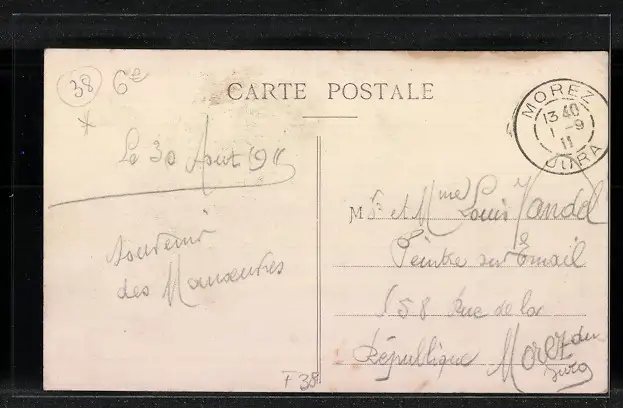 38 6e
CARTE POSTALE
MOREZ
13 40
1 - 9
11
JURA
Le 30 Aout 1911
Souvenir
des Manoeuvres
Mr et Mme Louis Mandel
Peintre sur Email
158 Rue de la
République Morez du
Jura
F 38